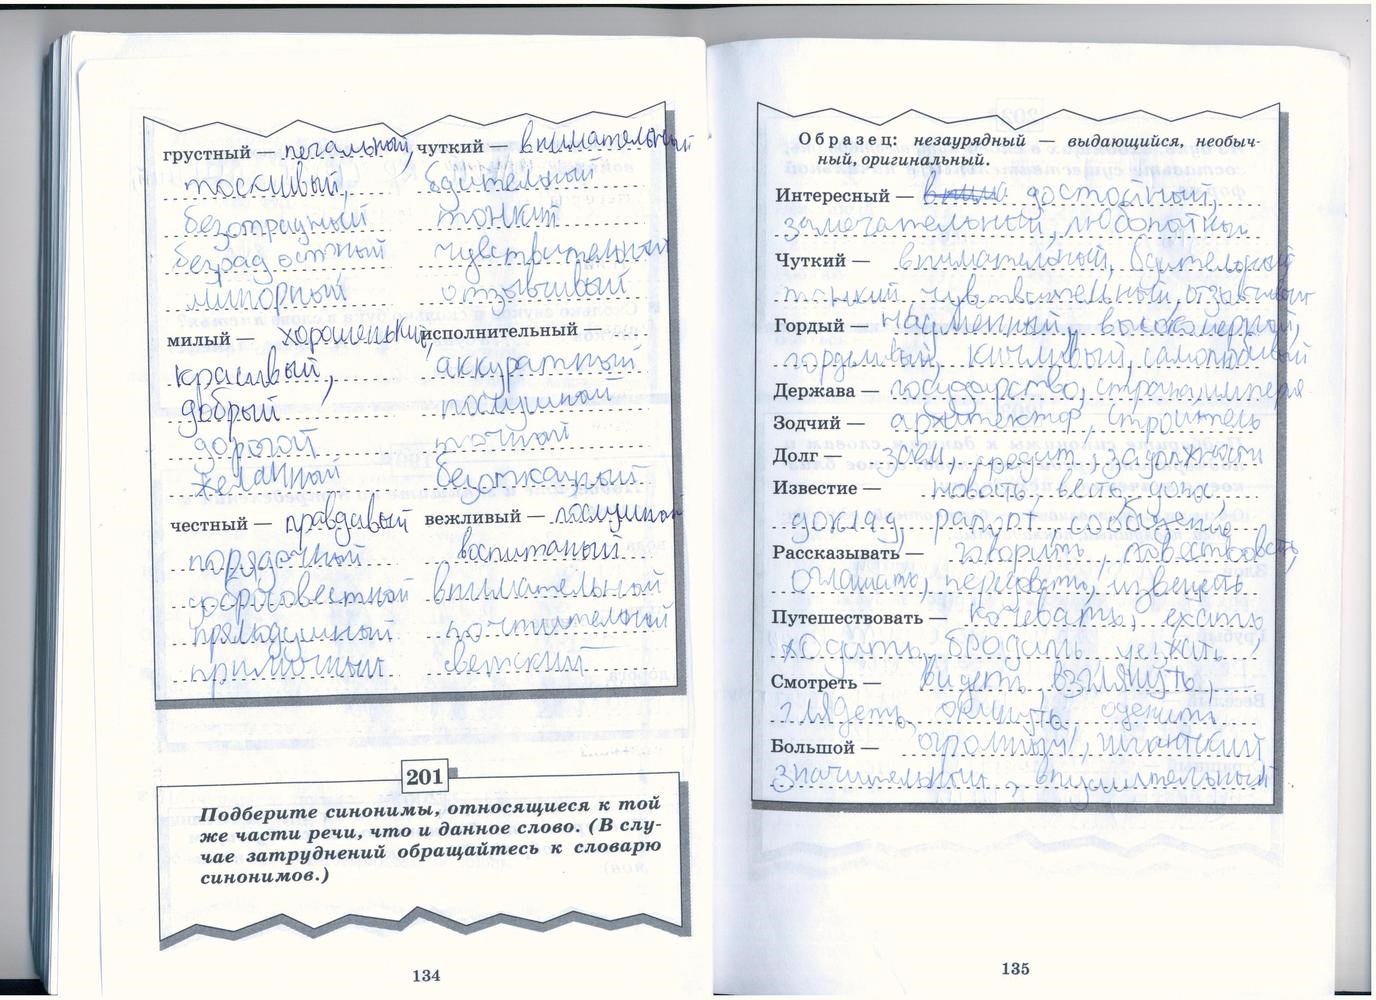 грустный — печальный, чуткий — внимательный
тоскливый, бдительный
безотрадный тонкий
безрадостный чувствительный
минорный отзывчивый
милый — хорошенький, исполнительный —
красивый, аккуратный
добрый послушный
дорогой точный
желанный безотказный
честный — правдивый вежливый — послушный
порядочный воспитаный
добросовестный внимательный
прямодушный почтительный
приличный светский
201
Подберите синонимы, относящиеся к той
же части речи, что и данное слово. (В слу-
чае затруднений обращайтесь к словарю
синонимов.)
134
Образец: незаурядный — выдающийся, необыч-
ный, оригинальный.
Интересный — достойный,
замечательный, любопытный
Чуткий — внимательный, бдительный
тонкий чувствительный, отзывчивый
Гордый — надменный высокомерный,
горделивый, кичливый, самолюбивый
Держава — государство, страна, империя
Зодчий — архитектор, строитель
Долг — заём, кредит, задолжности
Известие — новость, весть,
доклад, рапорт сообщение
Рассказывать — говорить, повествовать,
оглашать, передовать, извещать
Путешествовать — кочевать, ехать,
ходить, бродить уезжать
Смотреть — видеть, взглянуть,
глядеть, окинуть оценить
Большой — огромный, гигантский
значительный, внушительный
135